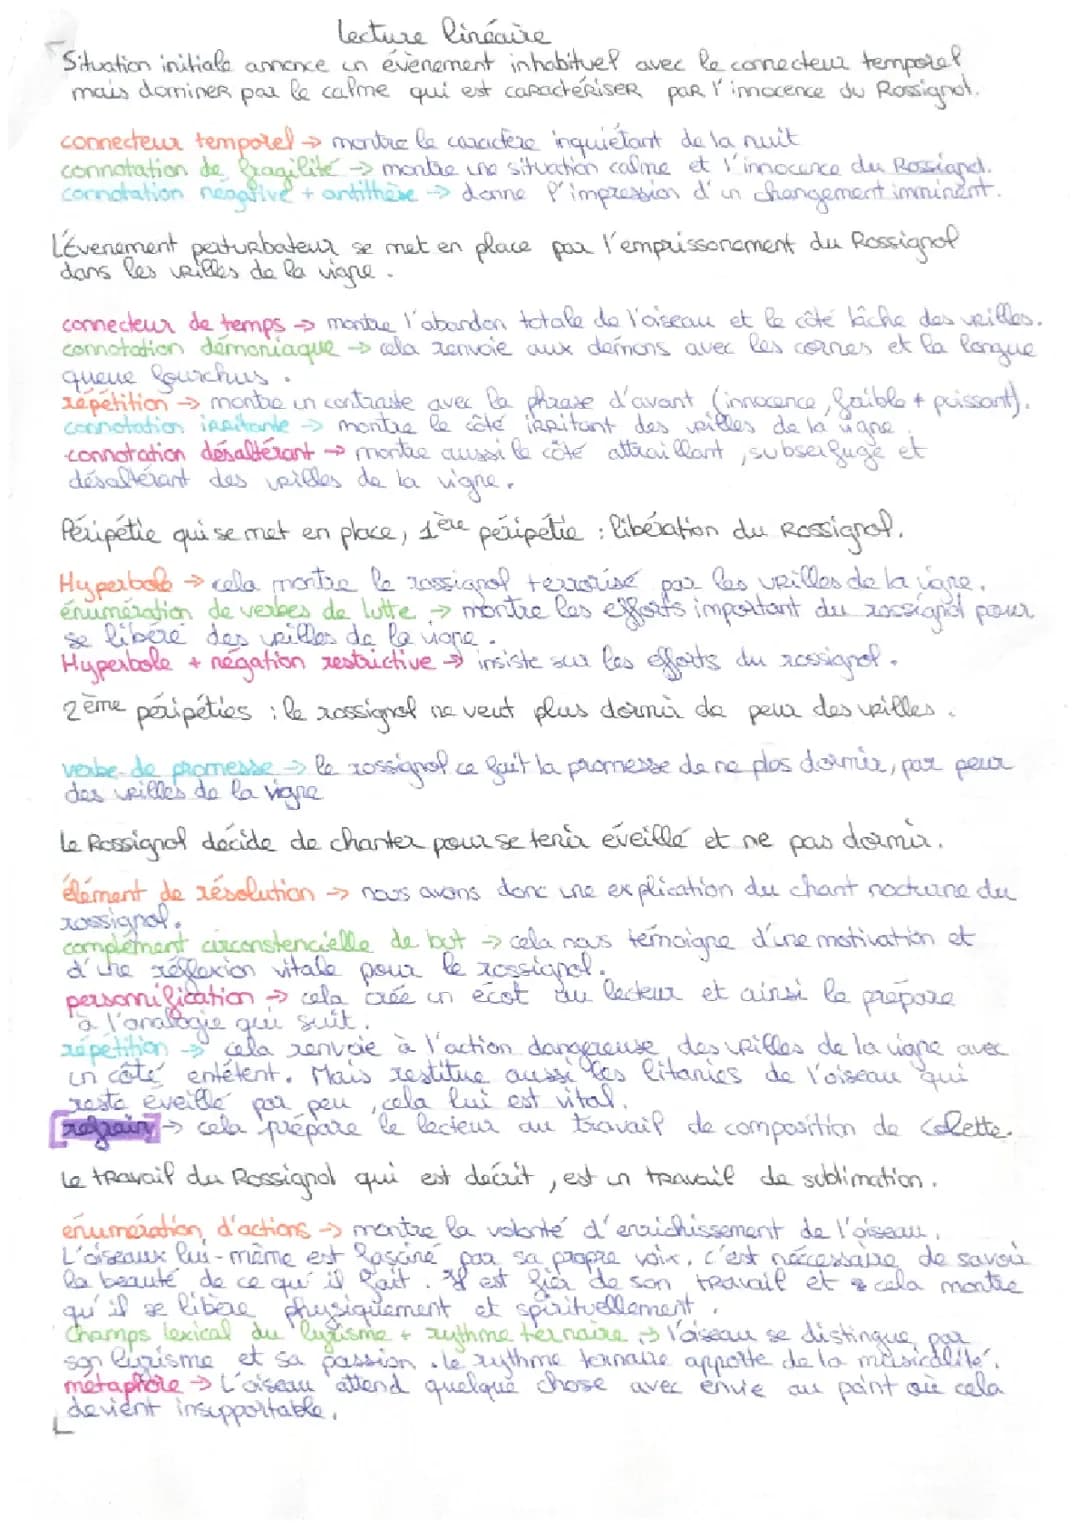 Lecture linéaire
Situation initiale annonce un évènement inhabituel avec le connecteur temporel
mais dominer par le calme qui est caractériser par l'innocence du Rossignol.
connecteur temporel → montre le caractère inquiétant de la nuit
connotation de fragilité → montre une situation calme et l'innocence du Rossignol.
connotation négative + antithèse → donne l'impression d'un changement imminent.
L'Évenement perturbateur se met en place par l'emprissonement du Rossignol
dans les vrilles de la vigne.
connecteur de temps → montre l'abandon totale de l'oiseau et le côté lâche des vrilles.
connotation démoniaque → cela renvoie aux démons avec les cornes et la longue
queue fourchus.
répétition → montre un contraste avec la phrase d'avant (innocence, faible + puissant).
connotation irritante → montre le côté irritant des vrilles de la vigne.
connotation désaltérant → montre aussi le côté attraillant, subserfuge et
désaltérant des vrilles de la vigne.
Péripétie qui se met en place, 1ère péripétie : libération du Rossignol.
Hyperbole → cela montre le rossignol terrorisé par les vrilles de la vigne.
énumération de verbes de lutte → montre les efforts important du rossignol pour
se libéré des vrilles de la vigne.
Hyperbole + négation restrictive → insiste sur les efforts du rossignol.
2ème péripéties : le rossignol ne veut plus dormir de peur des vrilles.
verbe de promesse → le rossignol ce fait la promesse de ne plus dormir, par peur
des vrilles de la vigne
Le Rossignol décide de chanter pour se tenir éveillé et ne pas dormir.
élément de résolution → nous avons donc une explication du chant nocturne du
rossignol.
complément circonstencielle de but → cela nous témoigne d'une motivation et
d'une réflexion vitale pour le rossignol.
personnification → cela crée un écot au lecteur et ainsi le prépare
à l'analogie qui suit.
répétition → cela renvoie à l'action dangereuse des vrilles de la vigne avec
un côté entêtent. Mais restitue aussi les litanies de l'oiseau qui
reste éveillé par peu, cela lui est vital.
[refrain] → cela prépare le lecteur au travail de composition de Colette.
Le travail du Rossignol qui est décrit, est un travail de sublimation.
énumération d'actions → montre la volonté d'enrichissement de l'oiseau.
L'oiseaux lui-même est fasciné par sa propre voix, c'est nécessaire de savoir
la beauté de ce qu'il fait. Il est fier de son travail et cela montre
qu'il se libère physiquement et spirituellement.
Champs lexical du lyrisme + rythme ternaire → l'oiseau se distingue par
son lyrisme et sa passion. Le rythme ternaire apporte de la musicalité.
métaphore → L'oiseau attend quelque chose avec envie au point où cela
devient insupportable.